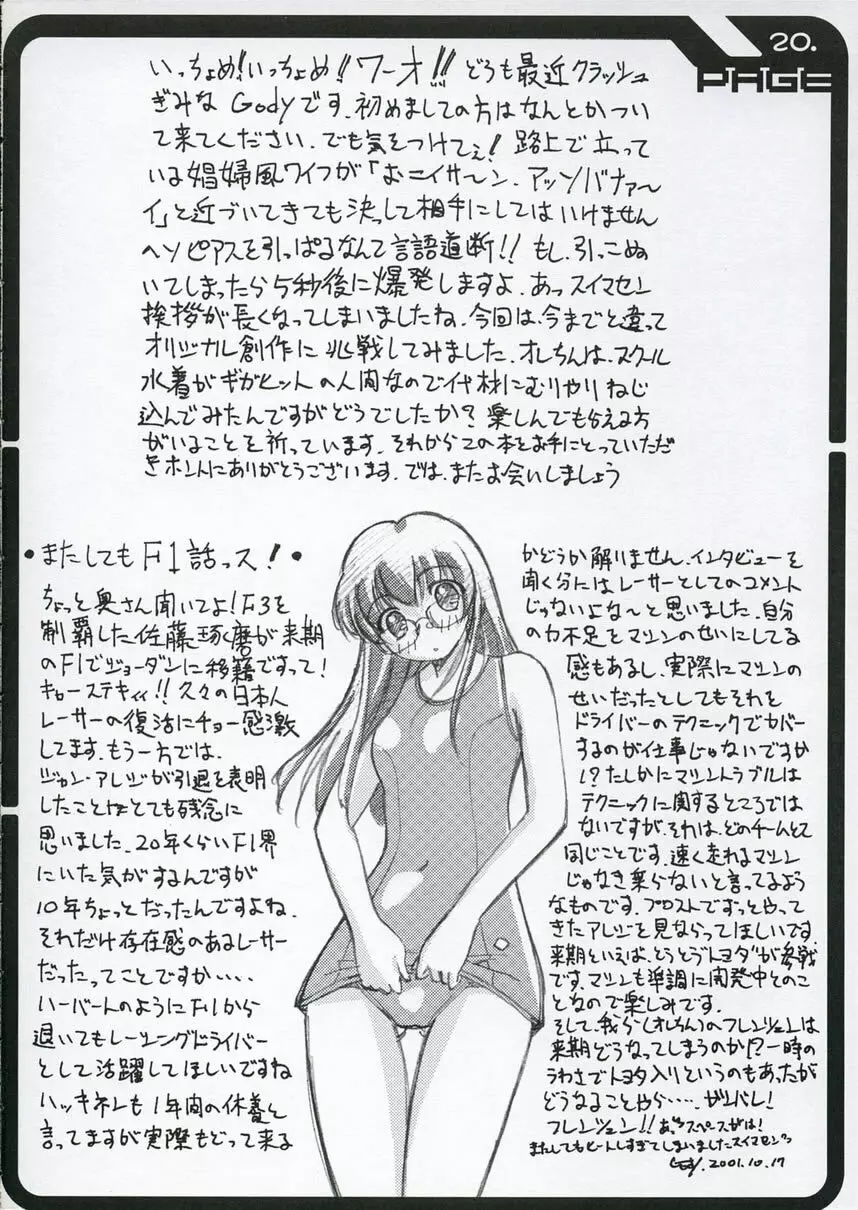 20.
PAGE
いっちょめ!いっちょめ!!ワーオ!!!どうも最近クラッシュ
ぎみなGodyです.初めましての方はなんとかつい
て来てください.でも気をつけてぇ!路上で立って
いる娼婦風ワイフが「おニイサ〜ン.アッソバナァ〜
イ」と近づいてきても決っして相手にしてはいけません
ヘソピアスを引っぱるなんて言語道断!!もし.引っこぬ
いてしまったら5秒後に爆発しますよ.あっスイマセン
挨拶が長くなってしまいましたね.今回は.今までと違って
オリジナル創作に挑戦してみました.オレちんは.スクール
水着がギガヒットの人肉なので代材にむりやりねじ
込んでみたんですがどうでしたか?楽しんでもらえる方
がいることを祈っています.それからこの本をお手にとっていただ
きホントにありがとうございます.では.またお会いしましょう
•またしてもF1話っス!•
ちょっと奥さん聞いてよ!F3を
制覇した佐藤琢磨が来期
のF1でジョーダンに移籍ですって!
キャーステキィィ!!久々の日本人
レーサーの復活にチョー感激
してます.もう一方では.
ジャン・アレジが引退を表明
したことはとても残念に
思いました.20年くらいF1界
にいた気がするんですが
10年ちょっとだったんですよね.
それだけ存在感のあるレーサー
だったってことですか・・・・
ハーバートのようにF1から
退いてもレーシングドライバー
として活躍してほしいですね
ハッキネンも1年間の休養と
言ってますが実際もどって来る
かどうか解りません.インタビューを
聞く分にはレーサーとしてのコメント
じゃないよな〜と思いました.自分
の力不足をマシンのせいにしてる
感もあるし.実際にマシンの
せいだったとしてもそれを
ドライバーのテクニックでカバー
するのが仕事じゃないですか
!?たしかにマシントラブルは
テクニックに関するところでは
ないですが.それは.どのチームとて
同じことです.速く走れるマシン
じゃなき乗らないと言ってるよう
なものです.プロストでずっとやって
きたアレジを見ならってほしいです.
来期といえば.とうとうトヨダが参戦
です.マシンも準調に開発中とのこ
となので楽しみです.
そして.我ら(オレちん)のフレンツェンは
来期どうなってしまうのか!?一時の
うわさでトヨタ入りというのもあったが
どうなることやら・・・・.ガンバレ!
フレンツェン!!あっスペースがは!
またしてもヒートしすぎてしまいましたスイマセンっ
Gody.2001.10.17